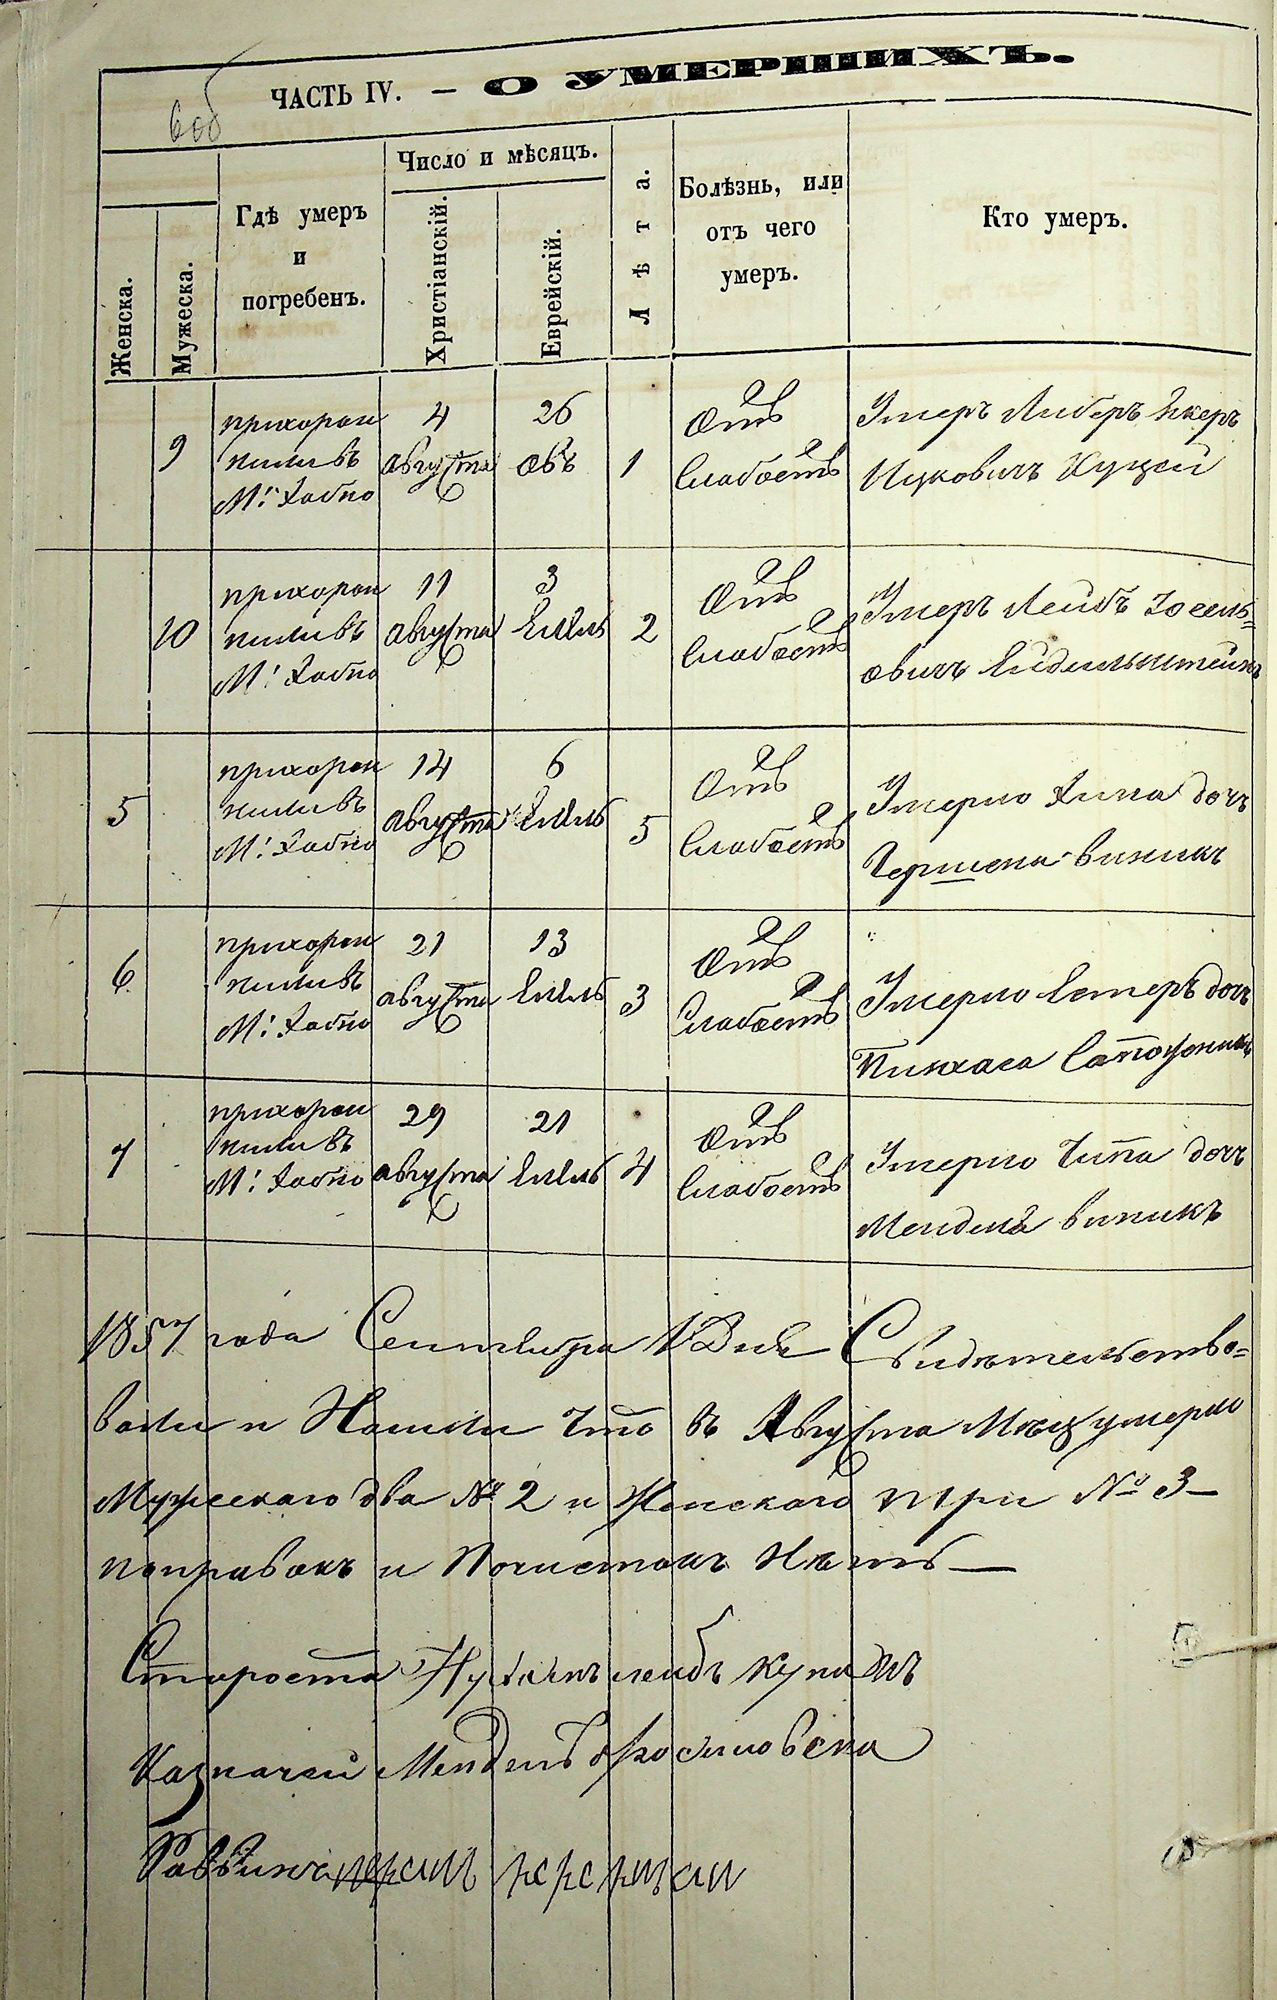 ЧАСТЬ IV. — О УМЕРШИХЪ.
Женска.
Мужеска.
Гдѣ умеръ
и
погребенъ.
Число и мѣсяцъ.
Христіанскій.
Еврейскій.
Лѣта.
Болѣзнь, или
отъ чего
умеръ.
Кто умеръ.
9
прихорон
нили въ
М: Хабно
4
августа
26
овъ
1
Отъ
Слабость
Умеръ Либеръ
Ицковичъ Куцей
10
прихорон
нили въ
М: Хабно
11
августа
3
Елиль
2
Отъ
Слабость
Умеръ Лейбъ Іосель=
овичъ
5
прихорон
нили въ
М: Хабно
14
августа
6
Елиль
5
Отъ
Слабость
Умерло дочъ
Гершона Виникъ
6
прихорон
нили въ
М: Хабно
21
августа
13
Елиль
3
Отъ
Слабость
Умерло Естеръ дочъ
Пинхаса
7
прихорон
нили въ
М: Хабно
29
августа
21
Елиль
4
Отъ
Слабость
Умерло Типа дочъ
Мендела Виникъ
1857 года Сентября 1 Дня Свидѣтельство=
вали и Нашли Что въ Августа Мѣсц умерло
Мужескаго два № 2 и Женскаго три № 3 —
поправокъ и Почистокъ Нѣтъ —
Староста лейбъ
Казначей Мендель
Раввинъ